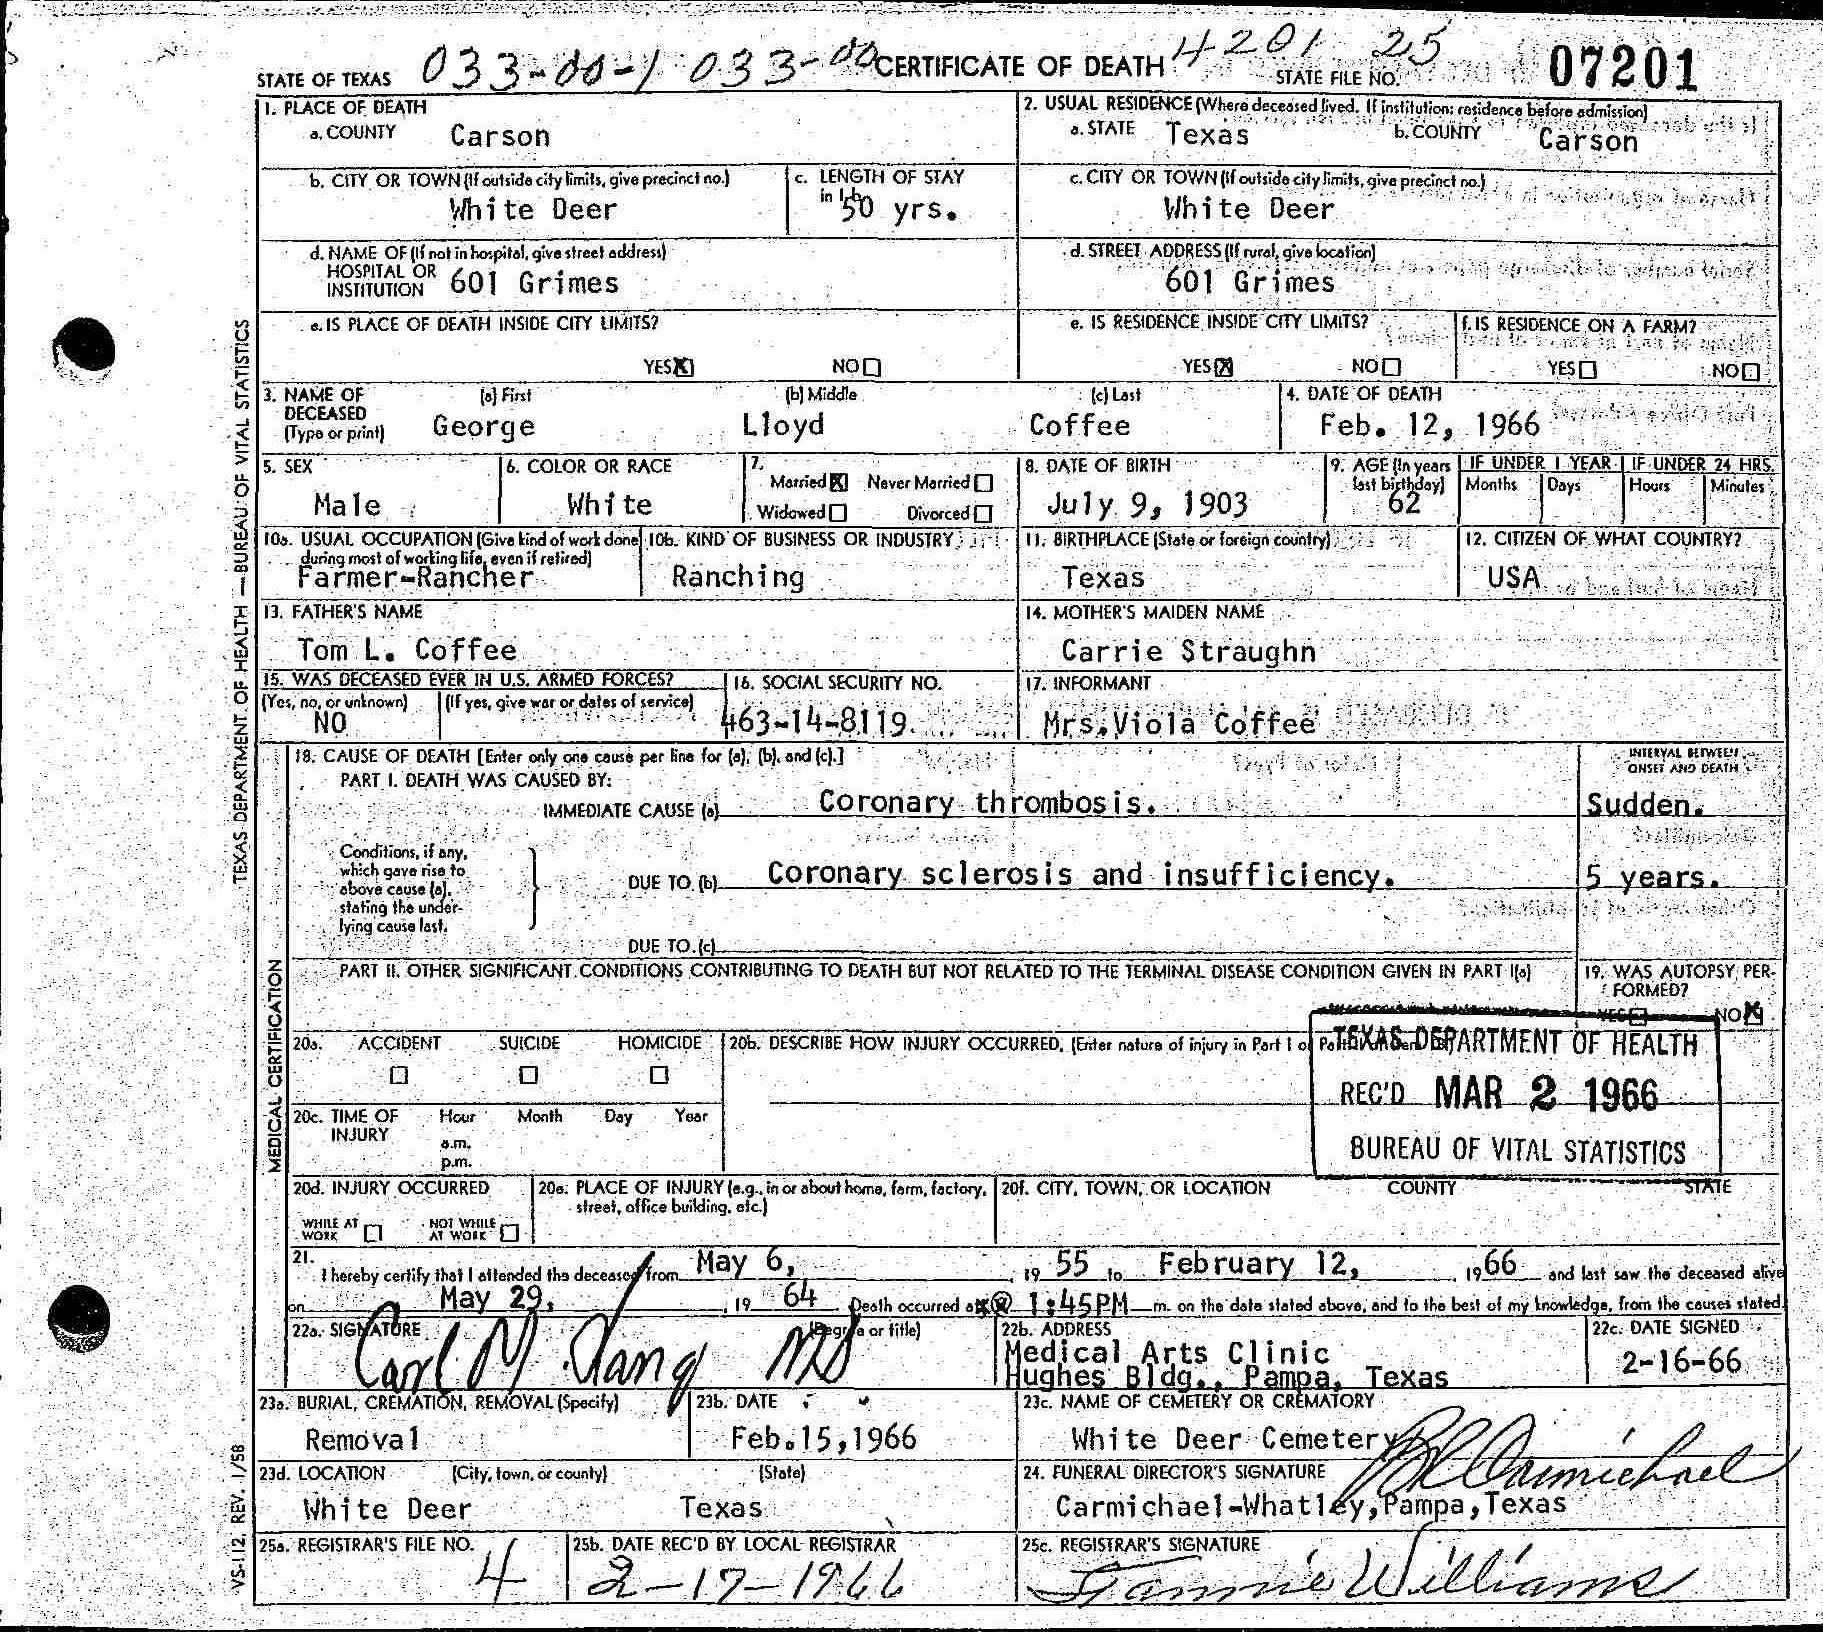 STATE OF TEXAS 033-00-1 033-00 CERTIFICATE OF DEATH 4201 25 STATE FILE NO. 07201
1. PLACE OF DEATH
a. COUNTY Carson
2. USUAL RESIDENCE (Where deceased lived. If institution: residence before admission)
a. STATE Texas b. COUNTY Carson
b. CITY OR TOWN (If outside city limits, give precinct no.) White Deer
c. LENGTH OF STAY in 1b 50 yrs.
c. CITY OR TOWN (If outside city limits, give precinct no.) White Deer
d. NAME OF (If not in hospital, give street address)
HOSPITAL OR
INSTITUTION 601 Grimes
d. STREET ADDRESS (If rural, give location)
601 Grimes
e. IS PLACE OF DEATH INSIDE CITY LIMITS?
YES X NO
e. IS RESIDENCE INSIDE CITY LIMITS?
YES X NO
f. IS RESIDENCE ON A FARM?
YES NO
3. NAME OF DECEASED (Type or print)
(a) First (b) Middle (c) Last
George Lloyd Coffee
4. DATE OF DEATH
Feb. 12, 1966
5. SEX
Male
6. COLOR OR RACE
White
7.
Married X Never Married
Widowed Divorced
8. DATE OF BIRTH
July 9, 1903
9. AGE (In years last birthday)
62
IF UNDER 1 YEAR IF UNDER 24 HRS.
Months Days Hours Minutes
10a. USUAL OCCUPATION (Give kind of work done
during most of working life, even if retired)
Farmer-Rancher
10b. KIND OF BUSINESS OR INDUSTRY
Ranching
11. BIRTHPLACE (State or foreign country)
Texas
12. CITIZEN OF WHAT COUNTRY?
USA
13. FATHER'S NAME
Tom L. Coffee
14. MOTHER'S MAIDEN NAME
Carrie Straughn
15. WAS DECEASED EVER IN U.S. ARMED FORCES?
(Yes, no, or unknown) (If yes, give war or dates of service)
NO
16. SOCIAL SECURITY NO.
463-14-8119
17. INFORMANT
Mrs. Viola Coffee
18. CAUSE OF DEATH [Enter only one cause per line for (a), (b), and (c).]
PART I. DEATH WAS CAUSED BY:
IMMEDIATE CAUSE (a) Coronary thrombosis.
INTERVAL BETWEEN
ONSET AND DEATH
Sudden.
Conditions, if any,
which gave rise to
above cause (a),
stating the under-
lying cause last.
DUE TO (b) Coronary sclerosis and insufficiency. 5 years.
DUE TO (c)
PART II. OTHER SIGNIFICANT CONDITIONS CONTRIBUTING TO DEATH BUT NOT RELATED TO THE TERMINAL DISEASE CONDITION GIVEN IN PART I(a)
19. WAS AUTOPSY PER-
FORMED?
YES NO X
20a. ACCIDENT SUICIDE HOMICIDE
20b. DESCRIBE HOW INJURY OCCURRED. (Enter nature of injury in Part I or
TEXAS DEPARTMENT OF HEALTH
REC'D MAR 2 1966
BUREAU OF VITAL STATISTICS
20c. TIME OF INJURY Hour Month Day Year
a.m.
p.m.
20d. INJURY OCCURRED
WHILE AT WORK NOT WHILE AT WORK
20e. PLACE OF INJURY (e.g., in or about home, farm, factory,
street, office building, etc.)
20f. CITY, TOWN, OR LOCATION COUNTY STATE
21.
I hereby certify that I attended the deceased from May 6, 19 55 to February 12, 1966 and last saw the deceased alive
on May 29, 19 64 Death occurred at 1:45PM m. on the date stated above, and to the best of my knowledge, from the causes stated.
22a. SIGNATURE (Degree or title)
Carl M. Lang MD
22b. ADDRESS
Medical Arts Clinic
Hughes Bldg., Pampa, Texas
22c. DATE SIGNED
2-16-66
23a. BURIAL, CREMATION, REMOVAL (Specify)
Removal
23b. DATE
Feb. 15, 1966
23c. NAME OF CEMETERY OR CREMATORY
White Deer Cemetery
23d. LOCATION (City, town, or county) (State)
White Deer Texas
24. FUNERAL DIRECTOR'S SIGNATURE
Carmichael
Carmichael-Whatley, Pampa, Texas
25a. REGISTRAR'S FILE NO.
4
25b. DATE REC'D BY LOCAL REGISTRAR
2-17-1966
25c. REGISTRAR'S SIGNATURE
Fannie Williams
TEXAS DEPARTMENT OF HEALTH — BUREAU OF VITAL STATISTICS
MEDICAL CERTIFICATION
VS-112. REV. 1/58